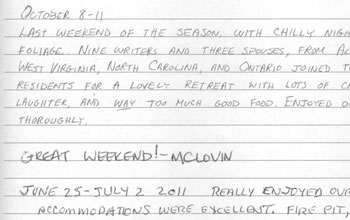 OCTOBER 8-11
LAST WEEKEND OF THE SEASON. WITH CHILLY NIGH
FOLIAGE. NINE WRITERS AND THREE SPOUSES, FROM AL
WEST VIRGINIA, NORTH CAROLINA, AND ONTARIO JOINED T
RESIDENTS FOR A LOVELY RETREAT WITH LOTS OF C
LAUGHTER, AND WAY TOO MUCH GOOD FOOD. ENJOYED O
THOROUGHLY.
GREAT WEEKEND!-MCLOVIN
JUNE 25-JULY 2 2011 REALLY ENJOYED OUR
ACCOMMODATIONS WERE EXCELLENT. FIRE PIT,